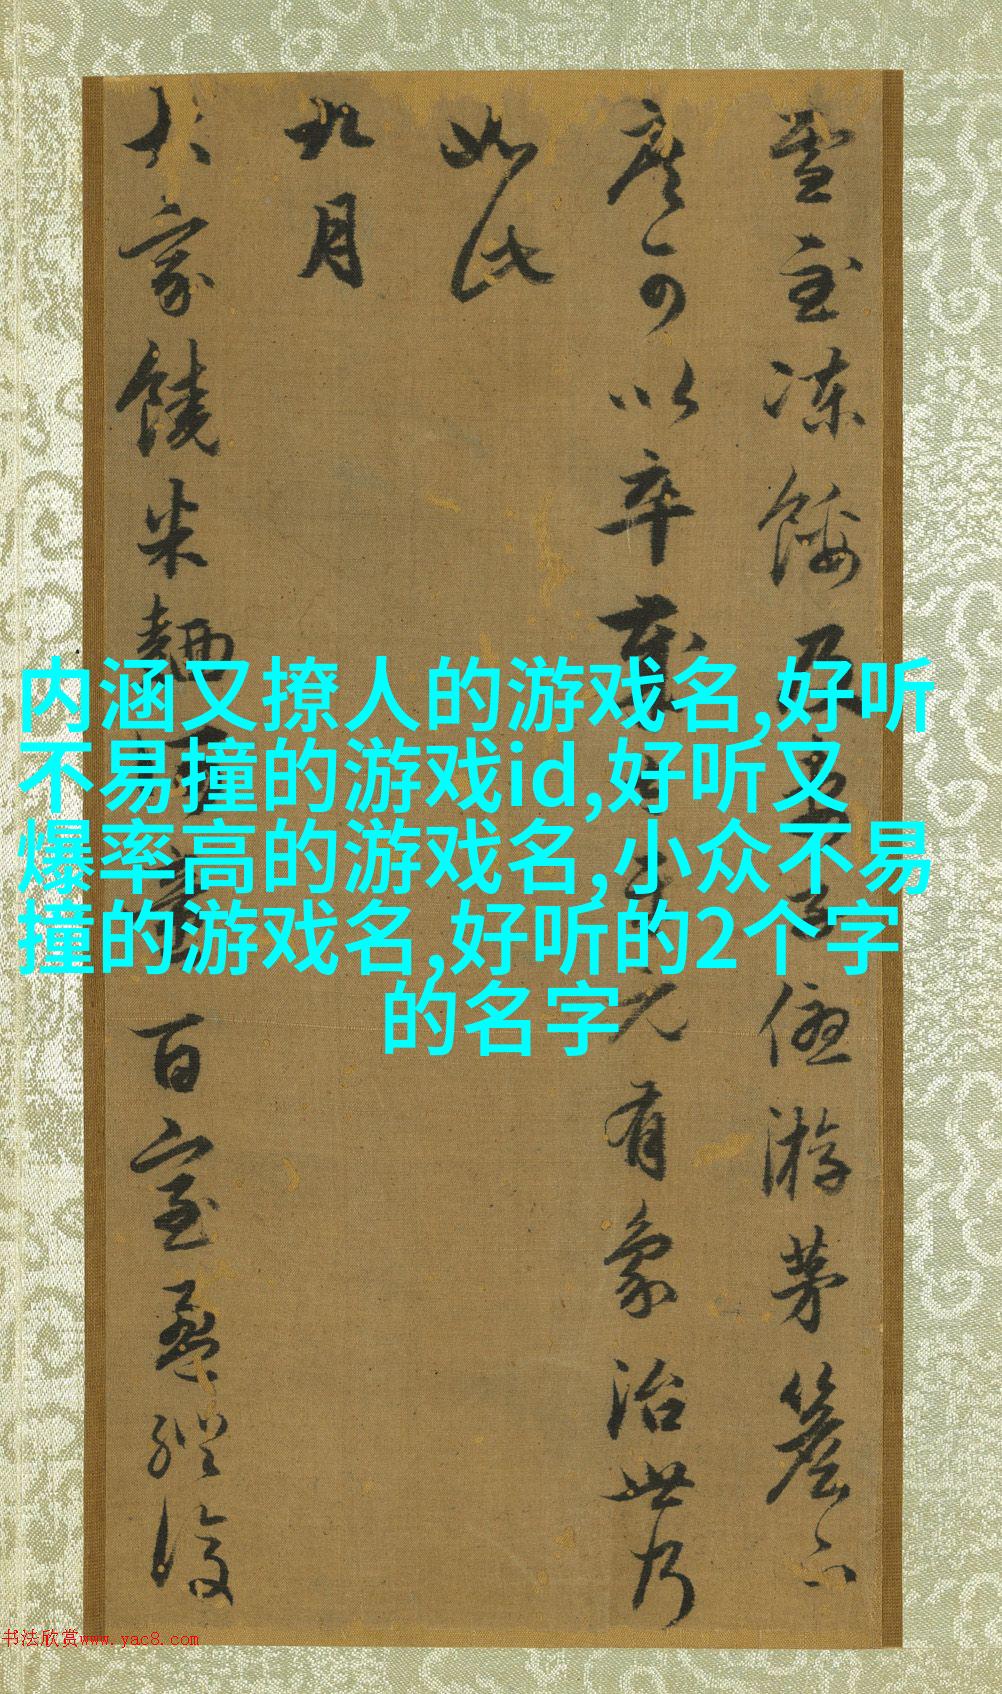 内涵又撩人的游戏名,好听
不易撞的游戏id,好听又
爆率高的游戏名,小众不易
撞的游戏名,好听的2个字
的名字
雪至凍餒及游茅簷下
度可以卒歲有象治世乃
如此
九月
大家饒米麵百室盈縱復
书法欣赏www.yac8.com